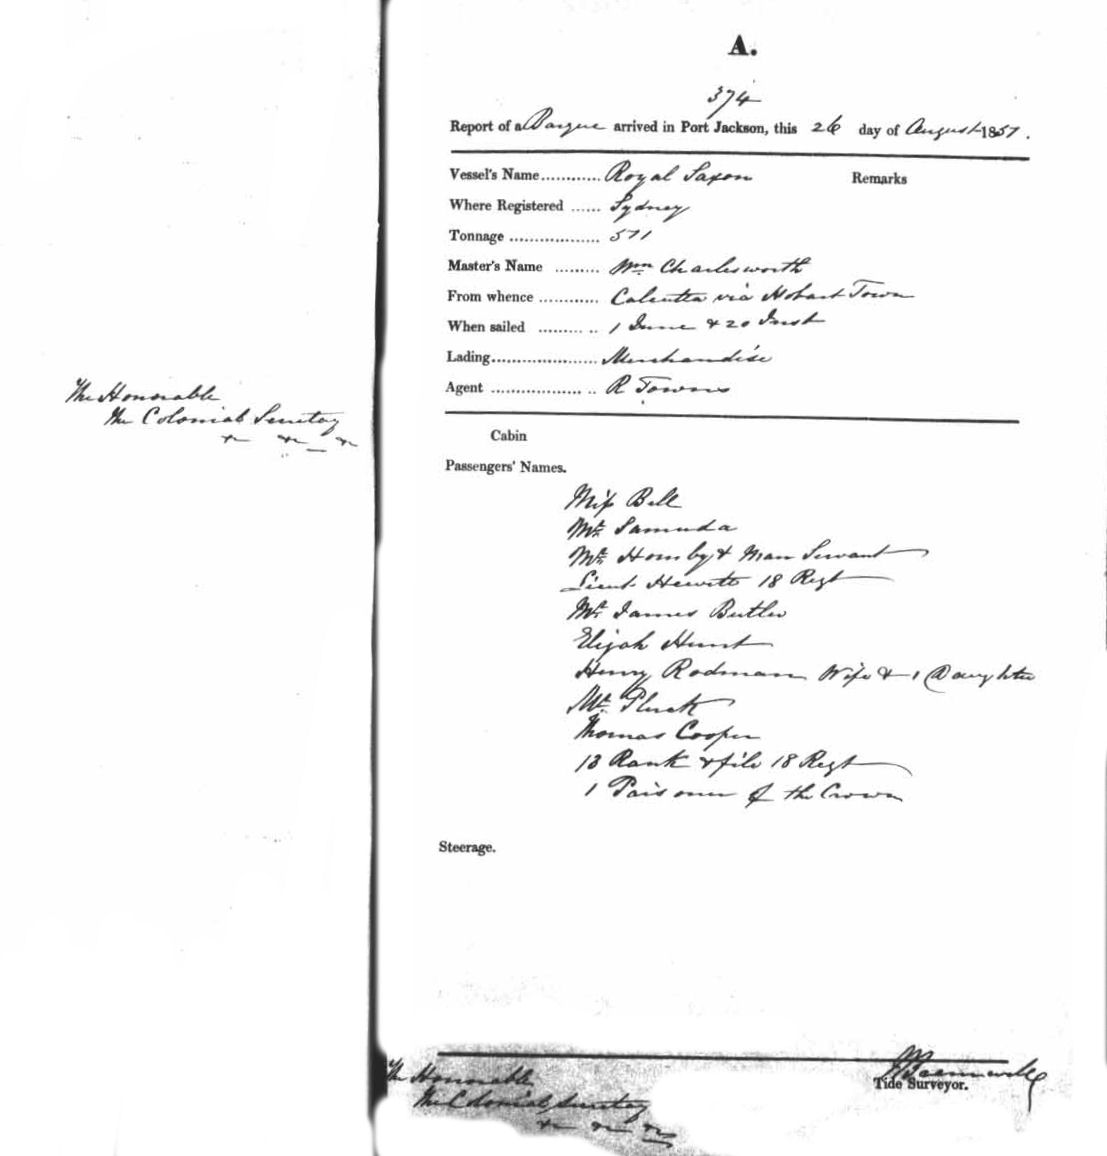 A.
374
Report of a Barque arrived in Port Jackson, this 26 day of August 1851.
Vessel's Name............ Royal Saxon Remarks
Where Registered ...... Sydney
Tonnage .................. 511
Master's Name ......... Wm Charlesworth
From whence ............ Calcutta via Hobart Town
When sailed ......... .. 1 June & 20 Inst
Lading..................... Merchandise
Agent .................. .. R Towns
The Honorable
The Colonial Secretary
Cabin
Passengers' Names.
Miss Bell
Mr. Samuda
Mr. Hornby & Man Servant
Lieut Hewett 18 Regt
Mr. James Butler
Elijah Hunt
Henry Rodman Wife & 1 Daughter
Mr. Pluck
Thomas Cooper
13 Rank & file 18 Regt
1 Prisoner of the Crown
Steerage.
Tide Surveyor.
The Honorable
The Colonial Secretary